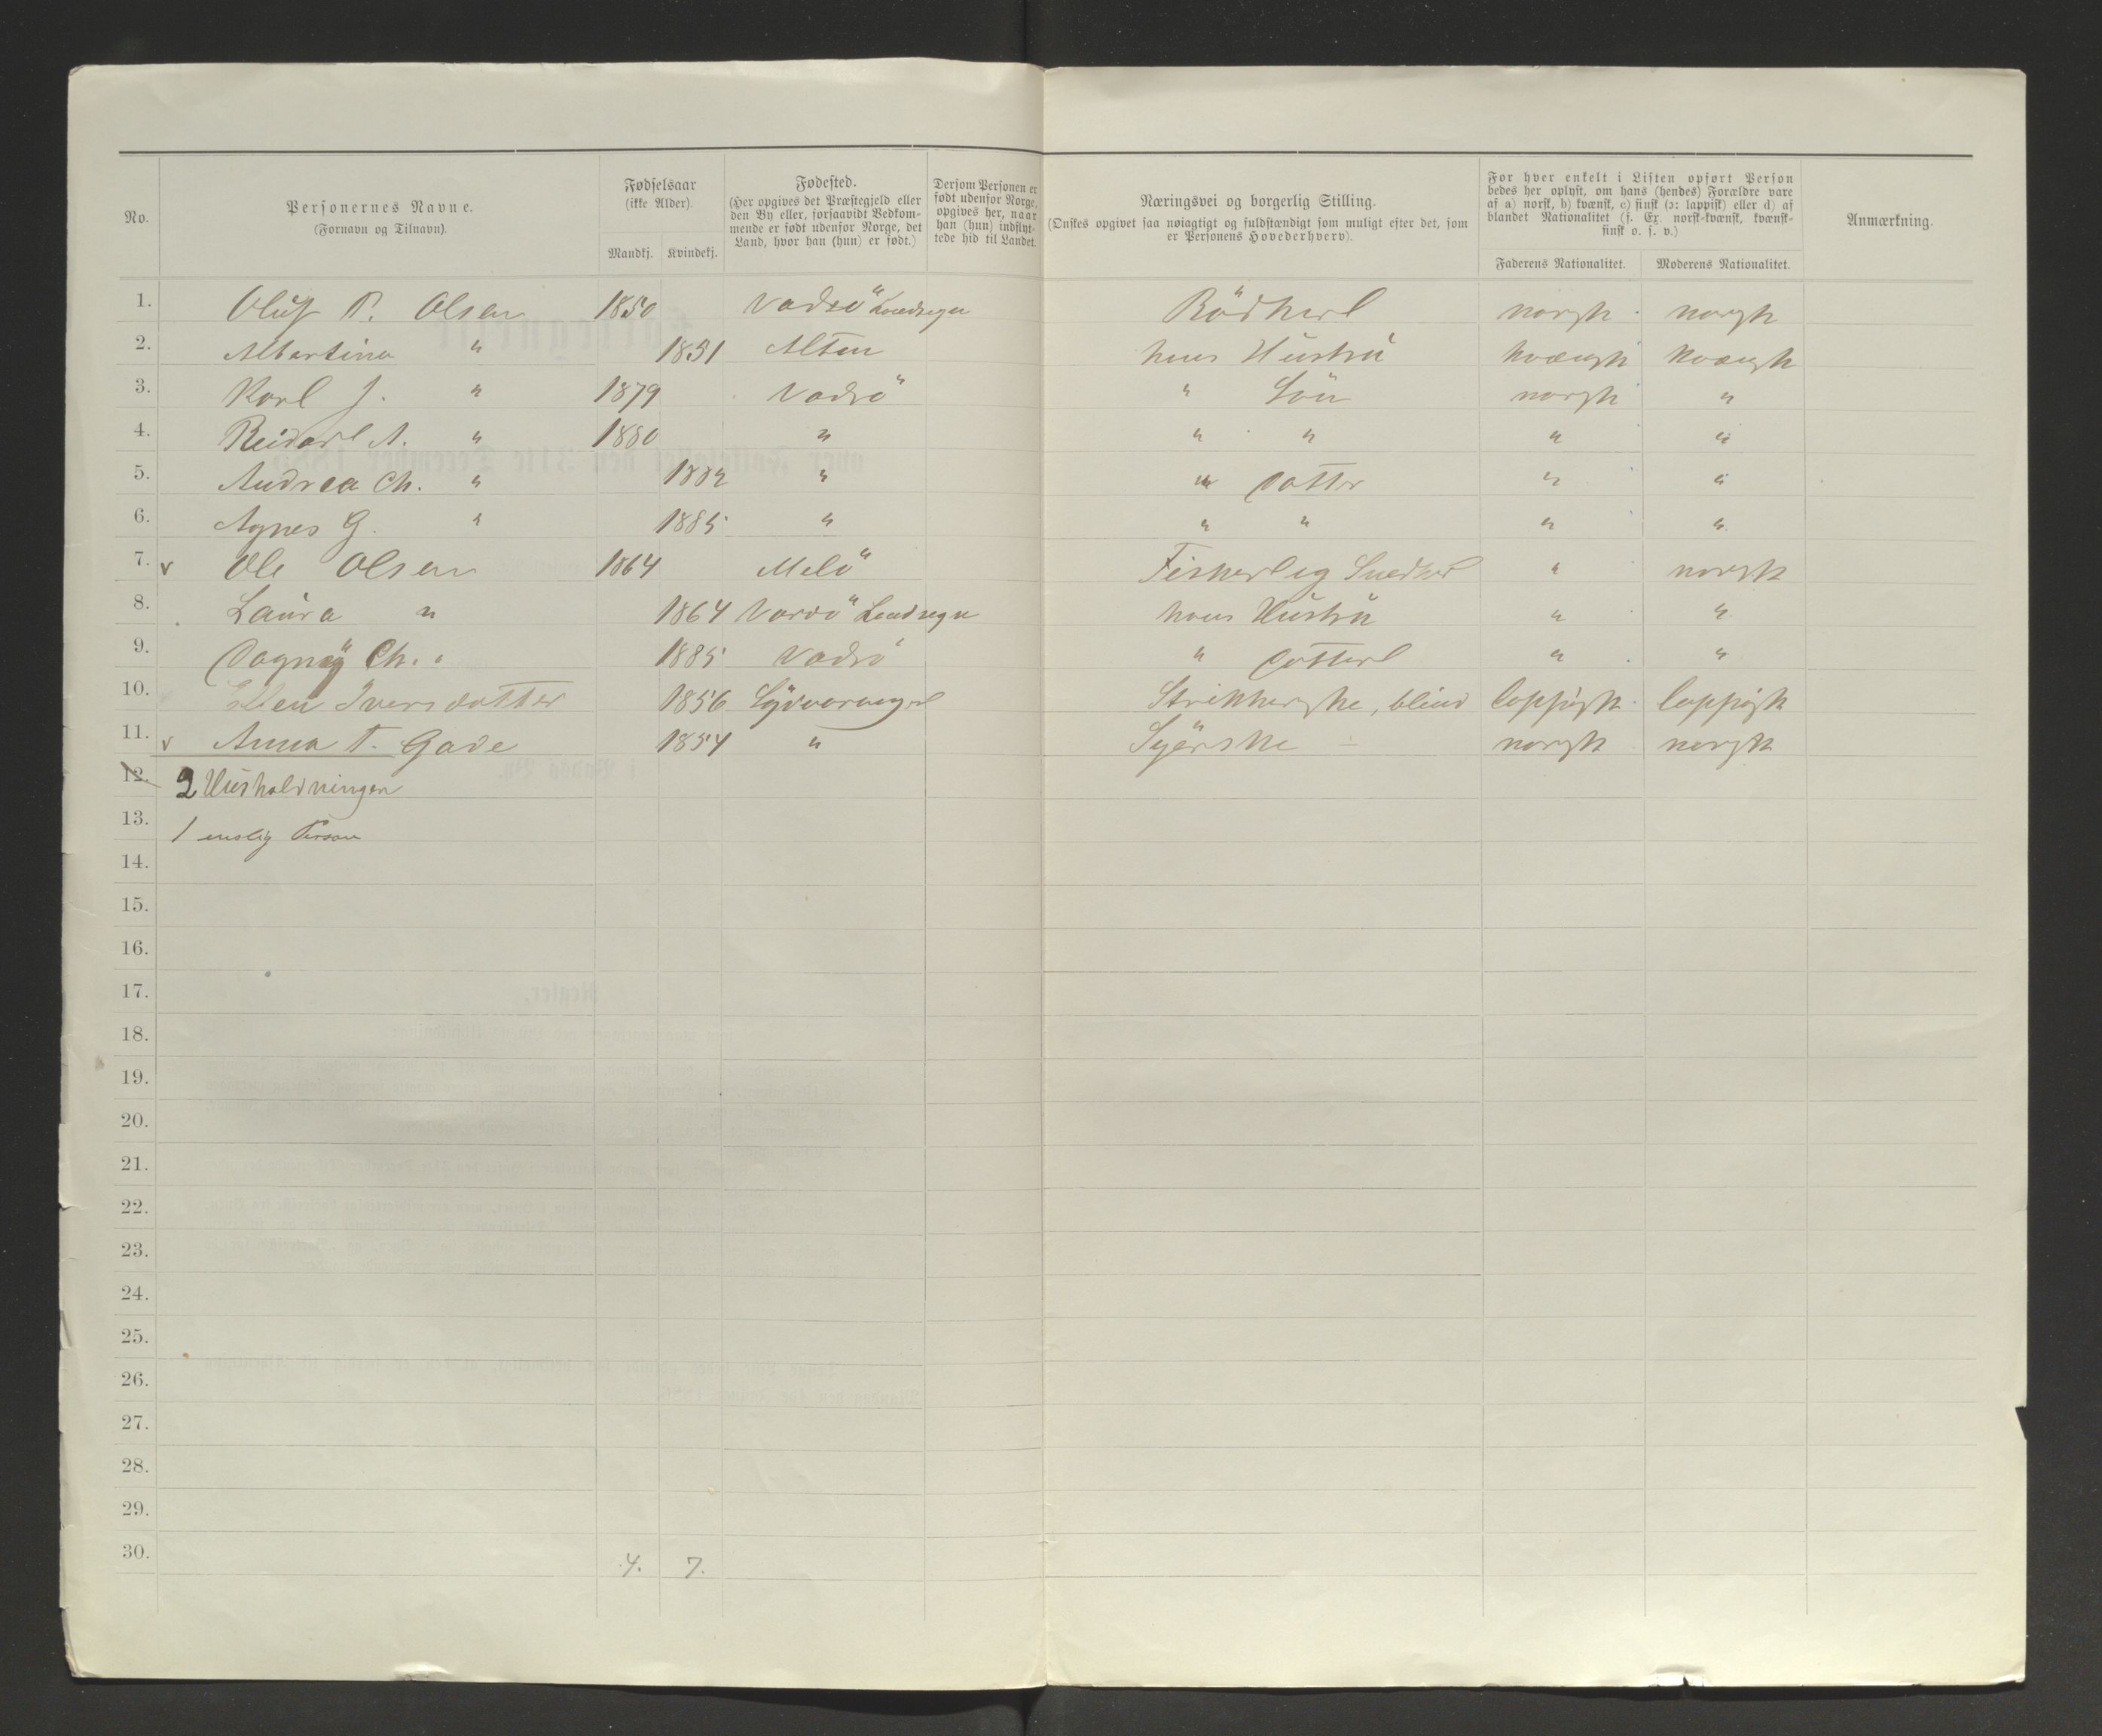 No.
Personernes Navne.
(Fornavn og Tilnavn).
Fødselsaar
(ikke Alder).
Mandkj. Kvindekj.
Fødested.
(Her opgives det Præstegjeld eller
den By eller, forsaavidt Vedkom-
mende er født udenfor Norge, det
Land, hvor han (hun) er født.)
Dersom Personen er
født udenfor Norge,
opgives her, naar
han (hun) indflyt-
tede hid til Landet.
Næringsvei og borgerlig Stilling.
(Ønskes opgivet saa nøiagtigt og fuldstændigt som muligt efter det, som
er Personens Hovederhverv).
For hver enkelt i Listen opført Person
bedes her oplyst, om hans (hendes) Forældre vare
af a) norsk, b) kvænsk, c) finsk (ɔ: lappisk) eller d) af
blandet Nationalitet (f. Ex. norsk-kvænsk, kvænsk-
finsk o. s. v.)
Faderens Nationalitet. Moderens Nationalitet.
Anmærkning.
1. Oluf P. Olsen 1850 Vadsö Landsogn Bödker norsk norsk
2. Albertina " 1851 Alten hans Hustru kvænsk kvænsk
3. Karl J. " 1879 Vadsö " Sön norsk "
4. Reidar A. " 1880 " " " " "
5. Andrea Ch. " 1882 " " Datter " "
6. Agnes G. " 1885 " " " " "
7. v Ole Olsen 1864 Melö Fisker og Snedker " norsk
8. Laura " 1864 Vardö Landsogn hans Hustru " "
9. Dagny Ch. " 1885 Vadsö " Datter " "
10. Ellen Iversdatter 1856 Sydvaranger Strikkerske, blind lappisk lappisk
11. v Anna T. Gade 1854 " Syerske norsk norsk
12. 2 Husholdninger
13. 1 enslig Person
14.
15.
16.
17.
18.
19.
20.
21.
22.
23.
24.
25.
26.
27.
28.
29.
30. 4. 7.